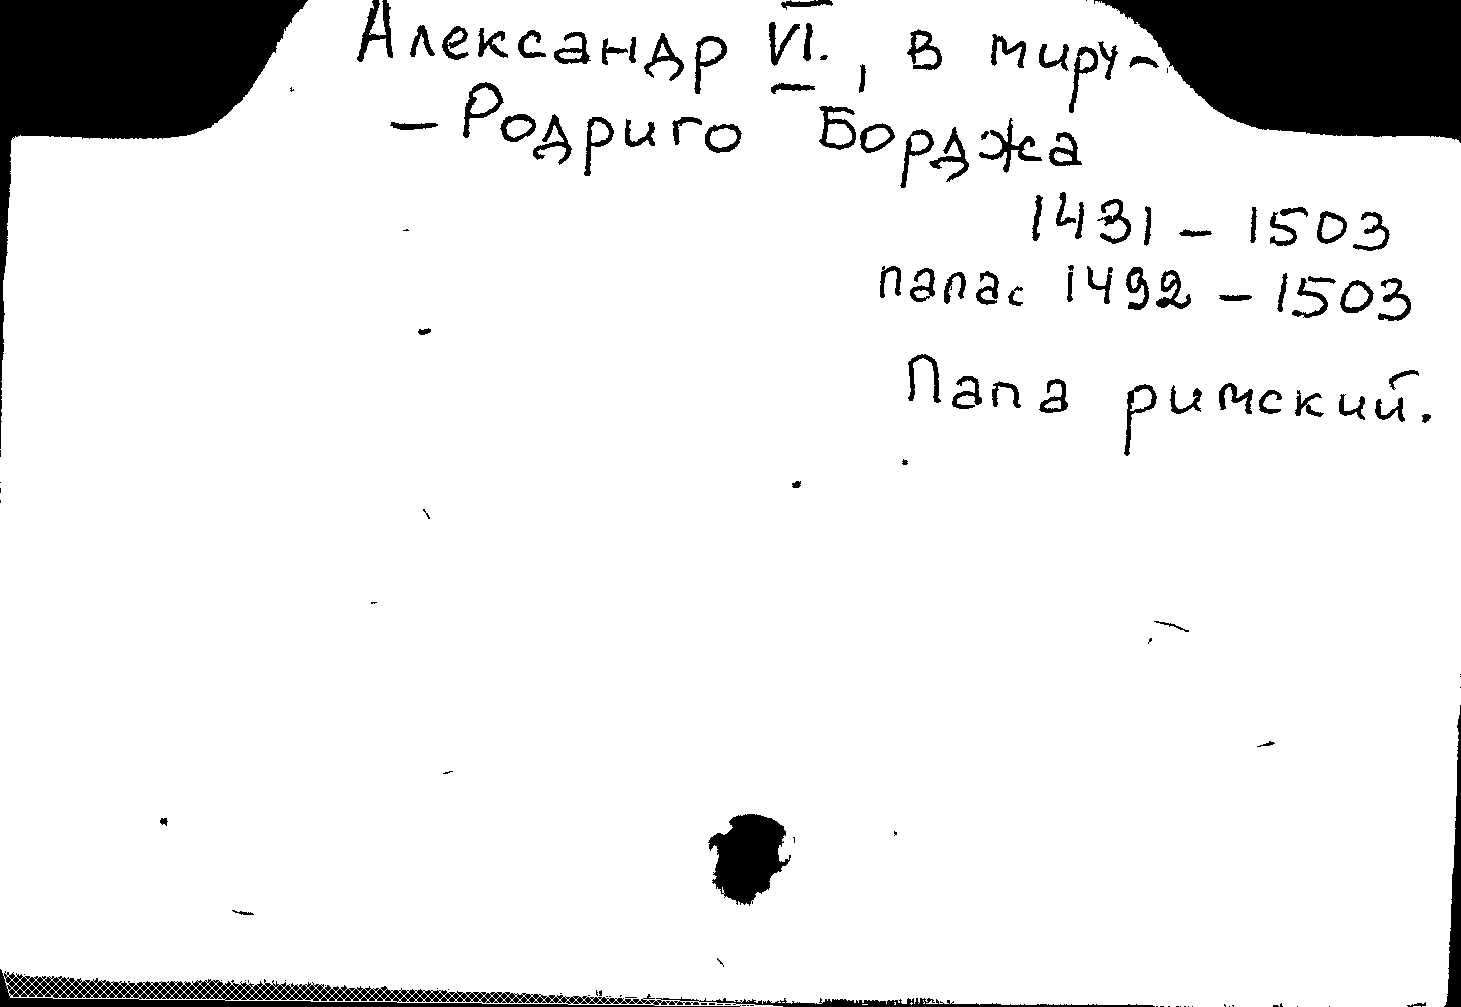 Александр VI., в миру -
- Родриго Борджа
1431 - 1503
папа с 1492 - 1503
Папа римский.